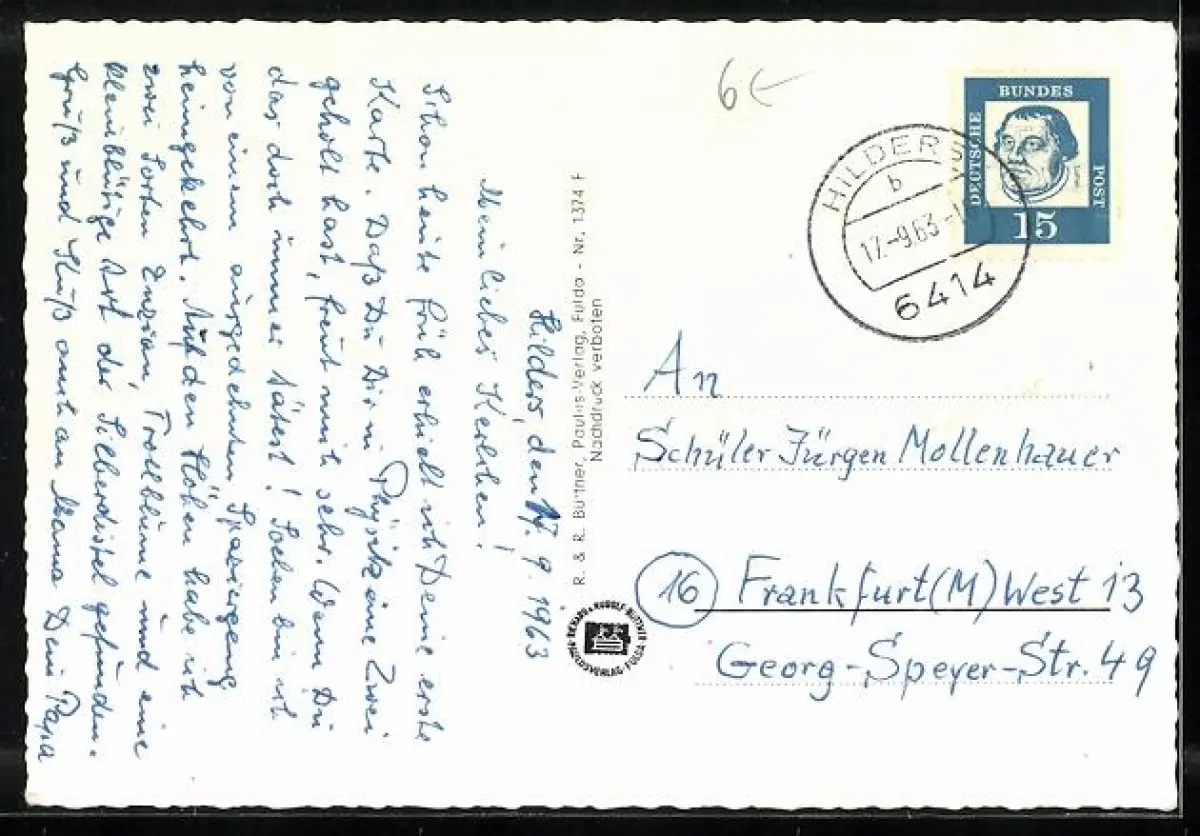 Hilders, den 17. 9. 1963
Mein liebes Kerlchen!
Schon heute früh erhielt ich Deine erste
Karte. Daß Du Dir in Physik eine Zwei
geholt hast, freut mich sehr. Wenn Du
das doch immer tätest! Soeben bin ich
von einem ausgedehnten Spaziergang
heimgekehrt. Auf den Höhen habe ich
zwei Sorten Enzian, Trollblume und eine
kleinblütige Art der Silberdistel gefunden.
Gruß und Kuß auch an Mama Dein Papa
R. & R. Büttner, Paulus-Verlag, Fulda - Nr. 1374 F
Nachdruck verboten
6€
DEUTSCHE
BUNDES
POST
15
HILDERS
b
17.-9.63-1
6414
An
Schüler Jürgen Mollenhauer
16 Frankfurt(M) West 13
Georg-Speyer-Str. 49